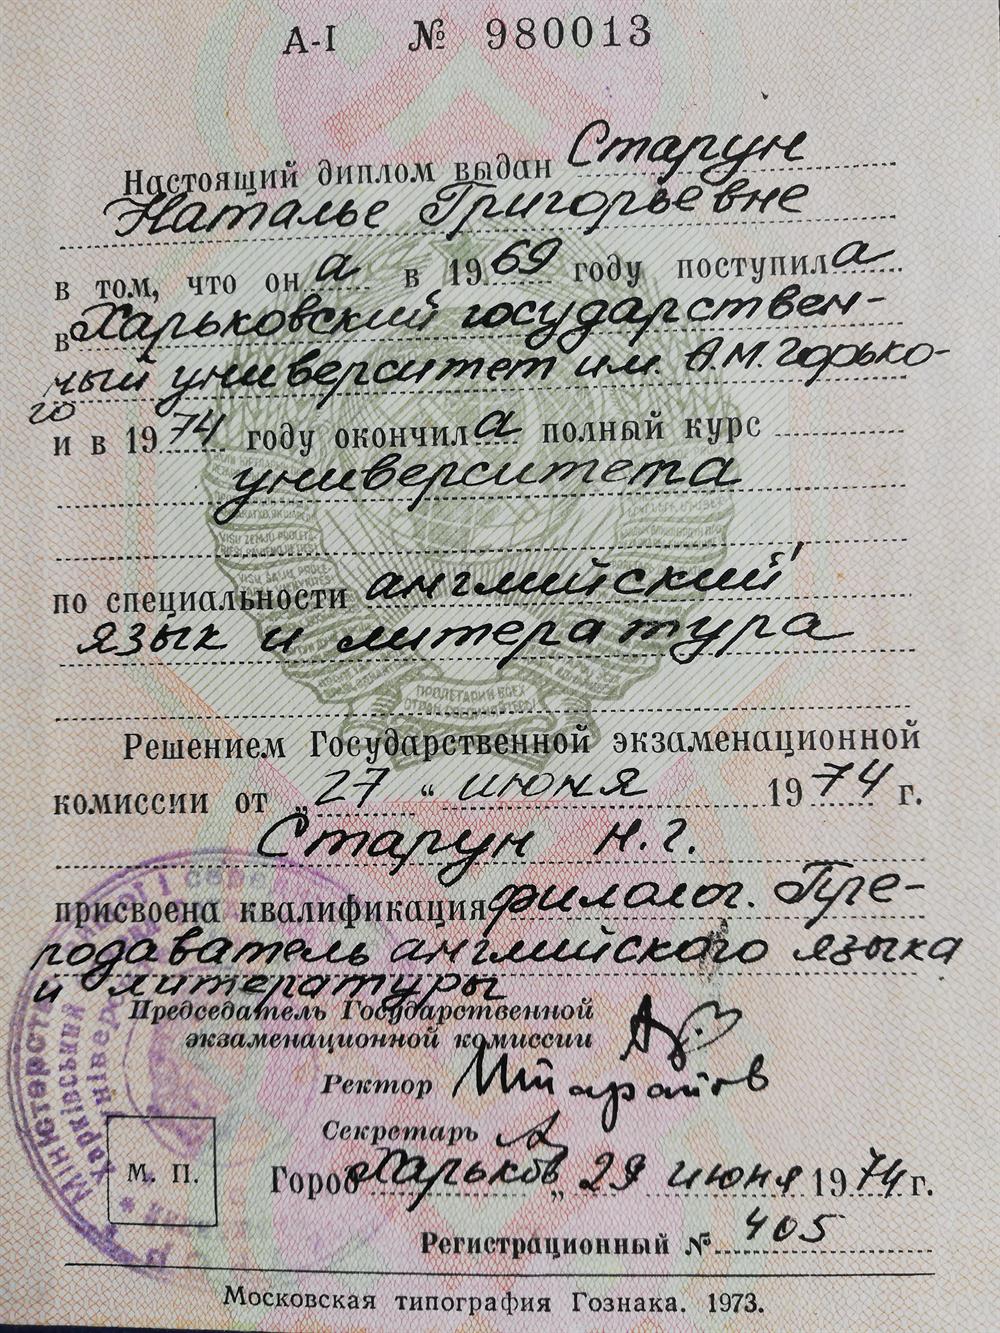 А-I № 980013
Настоящий диплом выдан Старун
Наталье Григорьевне
в том, что он а в 1969 году поступила
в Харьковский государствен-
ный университет им. А.М. Горько-
го
и в 1974 году окончила полный курс
университета
по специальности английский
язык и литература
ПРОЛЕТАРИИ ВСЕХ
СТРАН, СОЕДИНЯЙТЕСЬ!
Решением Государственной экзаменационной
комиссии от „27“ июня 1974 г.
Старун Н.Г.
присвоена квалификация филолог. Пре-
подаватель английского языка
и литературы
Председатель Государственной
экзаменационной комиссии
Ректор
Секретарь
М. П.
Город Харьков „ 29 июня 1974 г.
Регистрационный № 405
Московская типография Гознака. 1973.